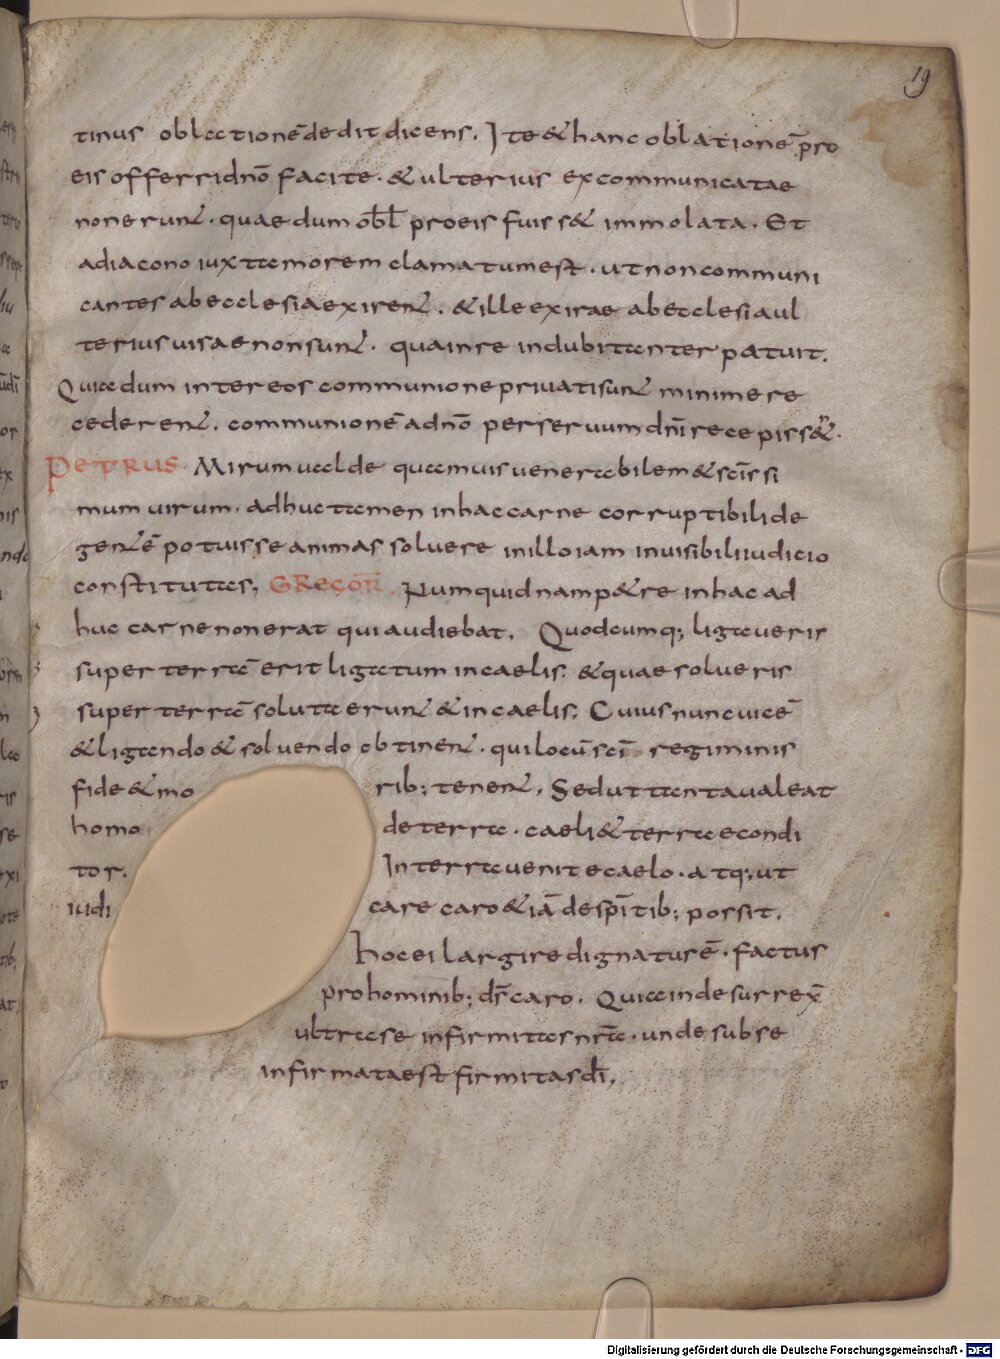 19
tinus oblationē dedit dicens. Ite & hanc oblationē pro
eis offerri dnō facite. & ulterius excommunicatae
non erunt. quae dum obl̄ pro eis fuiss& immolata. Et
a diacono iuxta morem clamatum est. ut non communi
cantes ab ecclesia exirent. & ille exirae ab ecclesia ul
terius uisae non sunt. qua in re indubitanter patuit.
Quia dum inter eos communione priuati sunt minime re
cederent. communionē a dnō per seruum dnī recepiss&.
PETRUS. Mirum ualde quamuis uenerabilem & scīssi
mum uirum. adhuc tamen in hac carne corruptibili de
gentē potuisse animas soluere in illo iam inuisibili iudicio
constitutas; GREGOR̄. Numquidnam p&re in hac ad
huc carne non erat qui audiebat. Quodcumq; ligaueris
super terrā erit ligatum in caelis. & quae solueris
super terrā soluta erunt & in caelis. Cuius nunc uicē
& ligando & soluendo obtinent. qui locū scī regiminis
fide & mo rib; tenent. Sed ut tanta ualeat
homo de terra. caeli & terrae condi
tor. In terra uenit e caelo. atq; ut
iudi care caro & iā de spītib; possit.
hoc ei largire dignatur ē. factus
pro hominib; ds̄ caro. Quia inde surrex̄
ultra se infirmitas nrā. unde sub se
infirmata est firmitas dī,
Digitalisierung gefördert durch die Deutsche Forschungsgemeinschaft - DFG